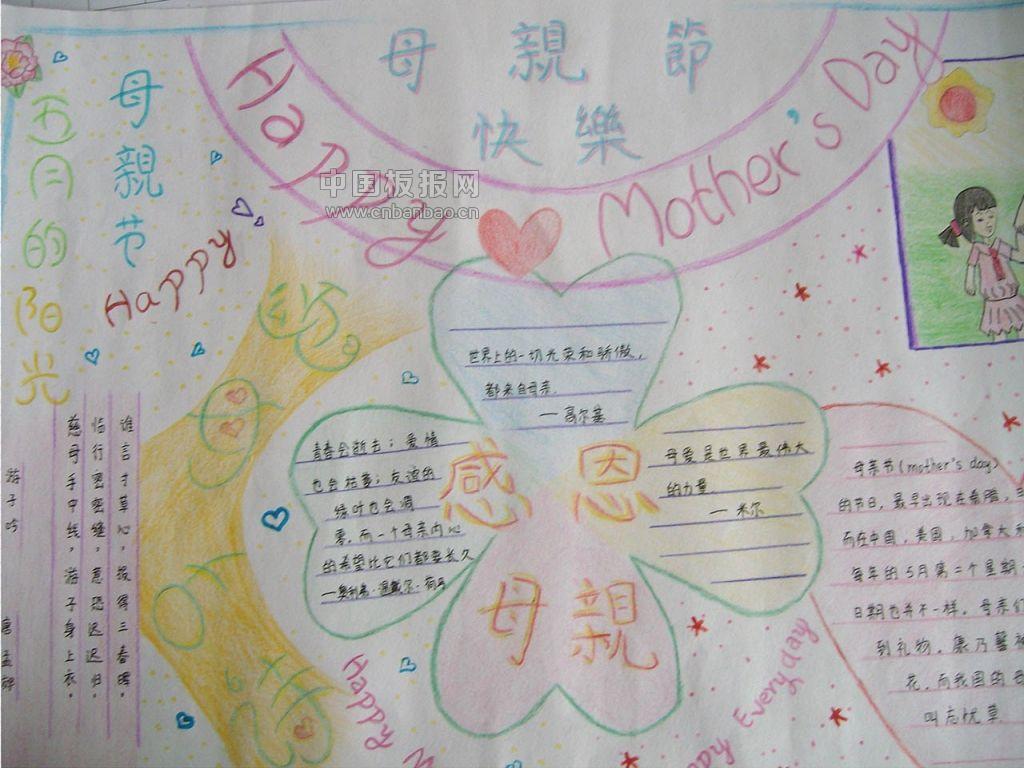 母親節
快樂
Happy Mother's Day
母親节
Happy
五月的阳光
中国板报网
www.cnbanbao.cn
世界上的一切光荣和骄傲，
都来自母亲．
—高尔基
青春会逝去；爱情
也会枯萎；友谊的
绿叶也会凋
零．而一个母亲内心
的希望比它们都要长久
母爱是世界最伟大
的力量．
—米尔
感恩
母親
游子吟
唐 孟郊
慈母手中线，游子身上衣．
临行密密缝，意恐迟迟归．
谁言寸草心，报得三春晖．
母亲节(mother's day)
的节日，最早出现在希腊，
而在中国，美国，加拿大和
每年的5月第二个星期
日期也并不一样．母亲们
到礼物．康乃馨被
花．而我国的母
叫忘忧草
Happy M
ppy Everyday